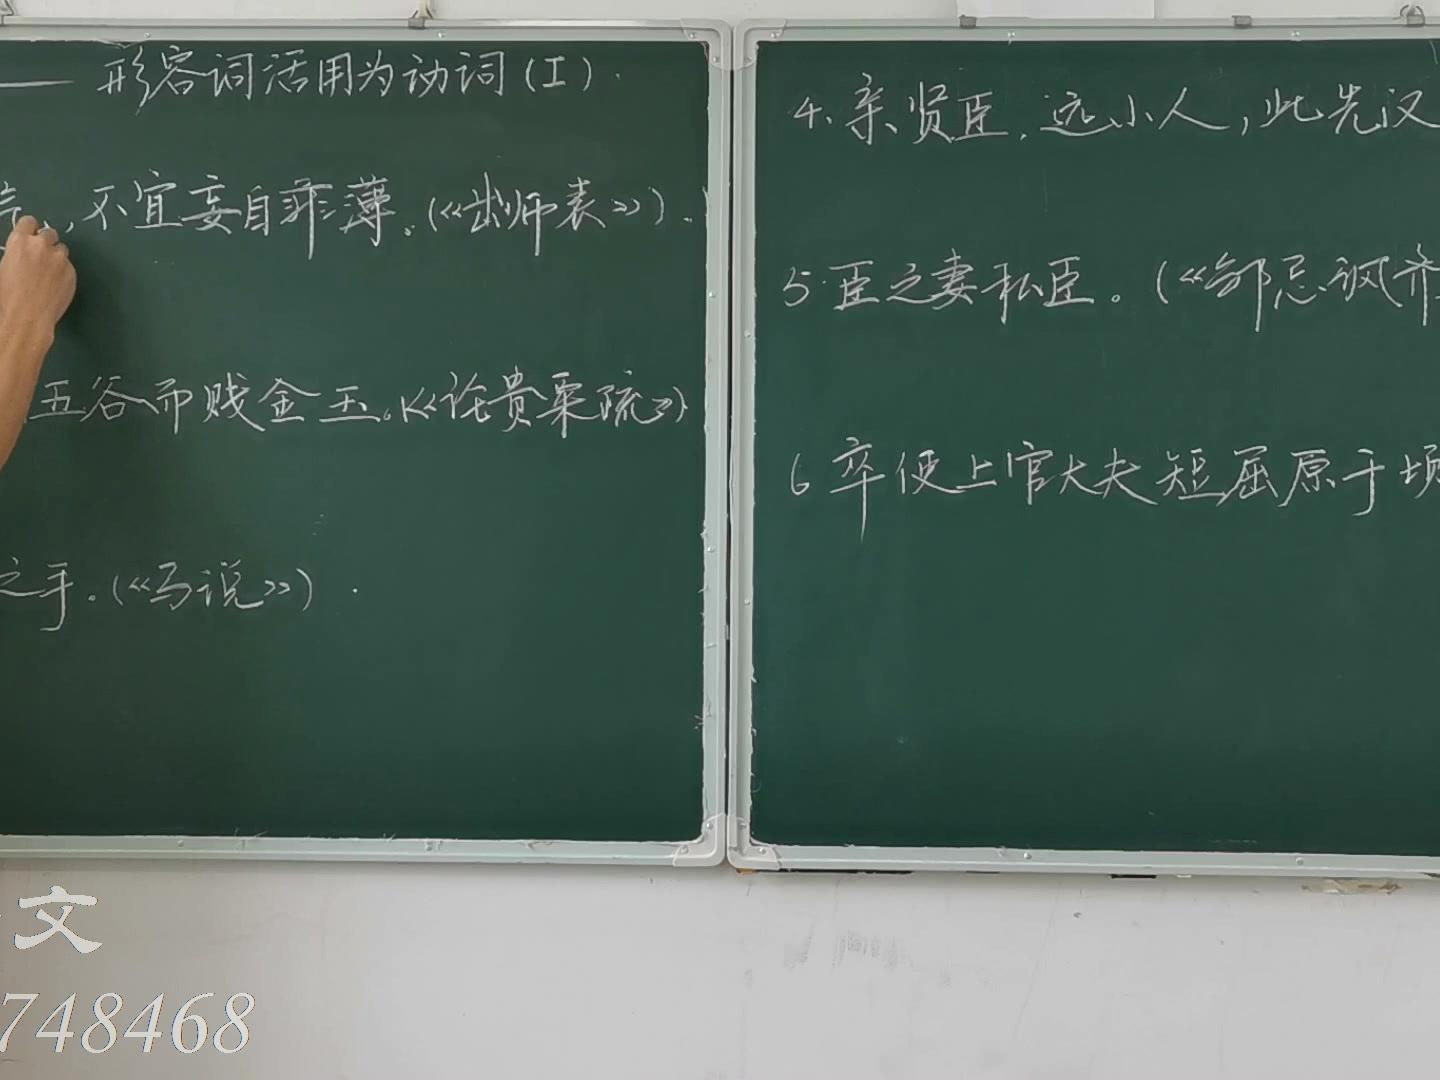 —— 形容词活用为动词(I).
、不宜妄自菲薄。(《出师表》).
五谷而贱金玉。(《论贵粟疏》)
之手。(《马说》).
4、亲贤臣,远小人,此先汉
5.臣之妻私臣。(《邹忌讽齐
6 卒使上官大夫短屈原于顷
文
748468